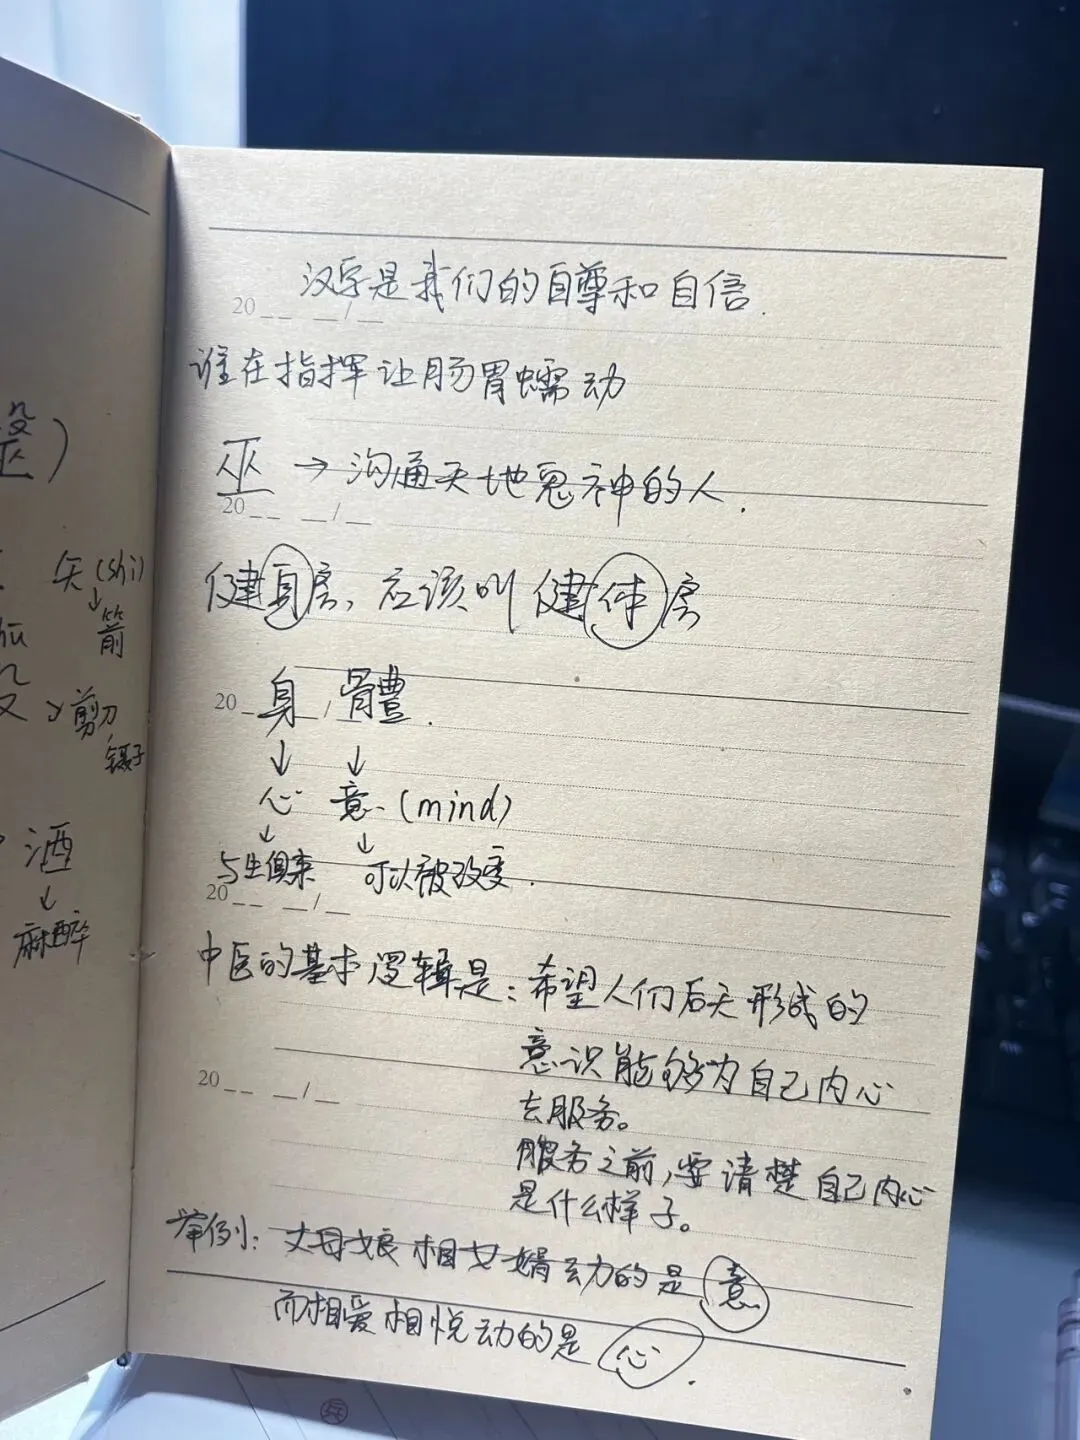 矢(shi)
↓
箭
→剪刀
镊子
酒
↓
麻醉
汉字是我们的自尊和自信.
20__ __/__
谁在指挥让肠胃蠕动
巫 → 沟通天地鬼神的人.
20__ __/__
健身房,应该叫健体房
20__ __/__
身 體.
↓ ↓
心 意.(mind)
↓ ↓
与生俱来 可以被改变.
20__ __/__
中医的基本逻辑是:希望人们后天形成的
意识能够为自己内心
20__ __/__
去服务。
服务之前,要请楚自己内心
是什么样子。
举例: 丈母娘相女婿动的是意
而相爱相悦动的是心.